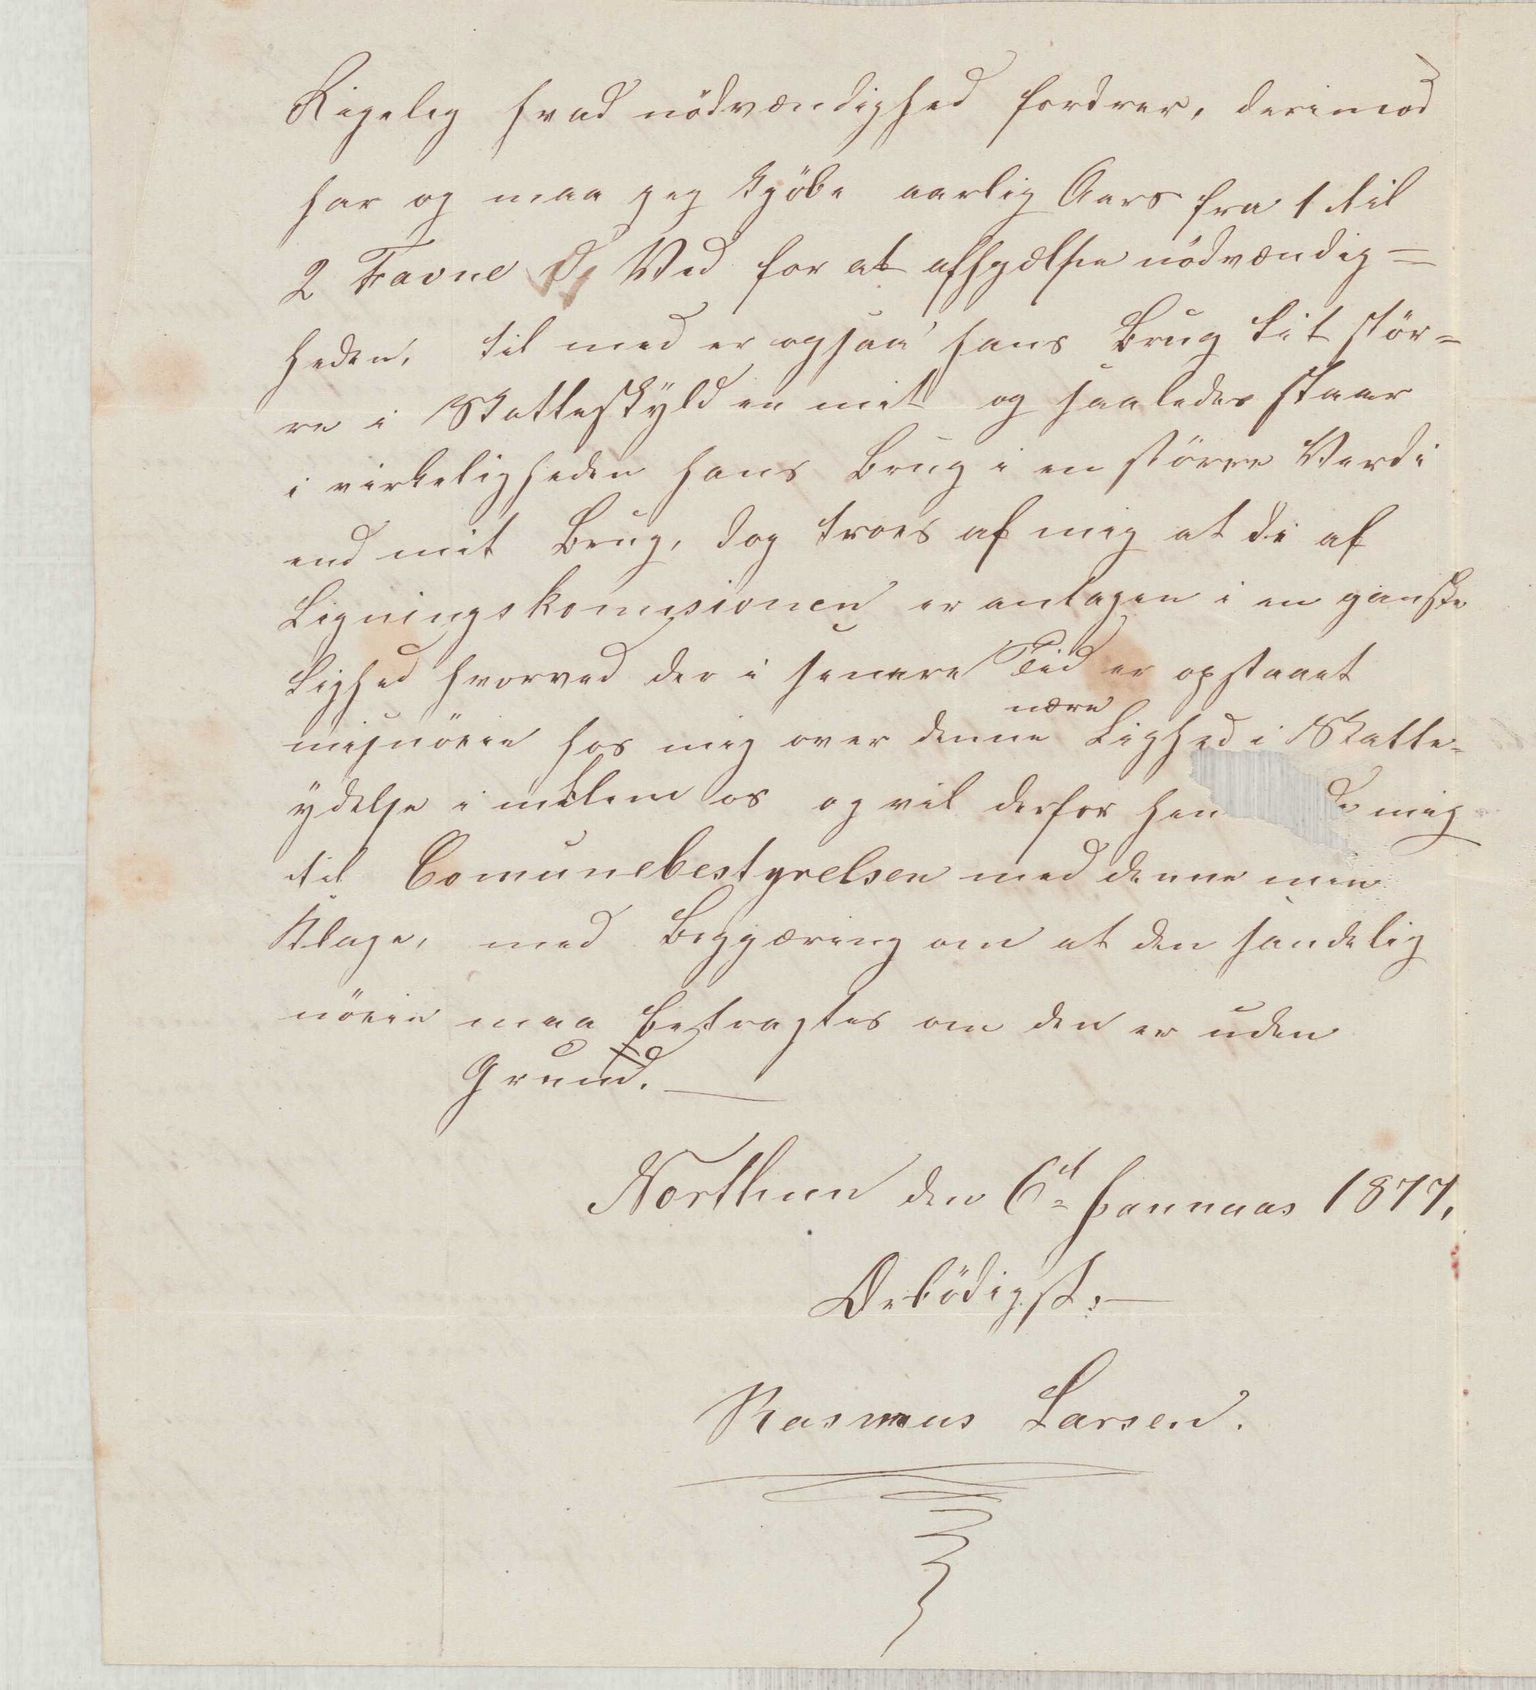 Rigelig hvad nödvændighed fordrer, derimod
har og maa jeg kjöbe aarlig Aars fra 1 til
2 Favne Ved for at afhjælpe nödvændig=
heden, til med er ogsaa hans Brug lit stör=
re i Skatteskyld en mit og saaledes staar
i virkeligheden hans Brug i en större Verdi
end mit Brug, dog troes af mig at di af
Ligningskomisionen er antagen i en ganske
Lighed hvorved der i senere Tid er opstaaet
misnöeie hos mig over denne nære Lighed i Skatte-
ydelse imelem os og vil derfor hen de mig
til Comunebestyrelsen med denne min
Klage, med Begjæring om at den sandelig
nöeie maa betragtes om den er uden
Grund.
Northun den 6te Jannuas 1877,
Örbödigst:
Rasmus Larsen.